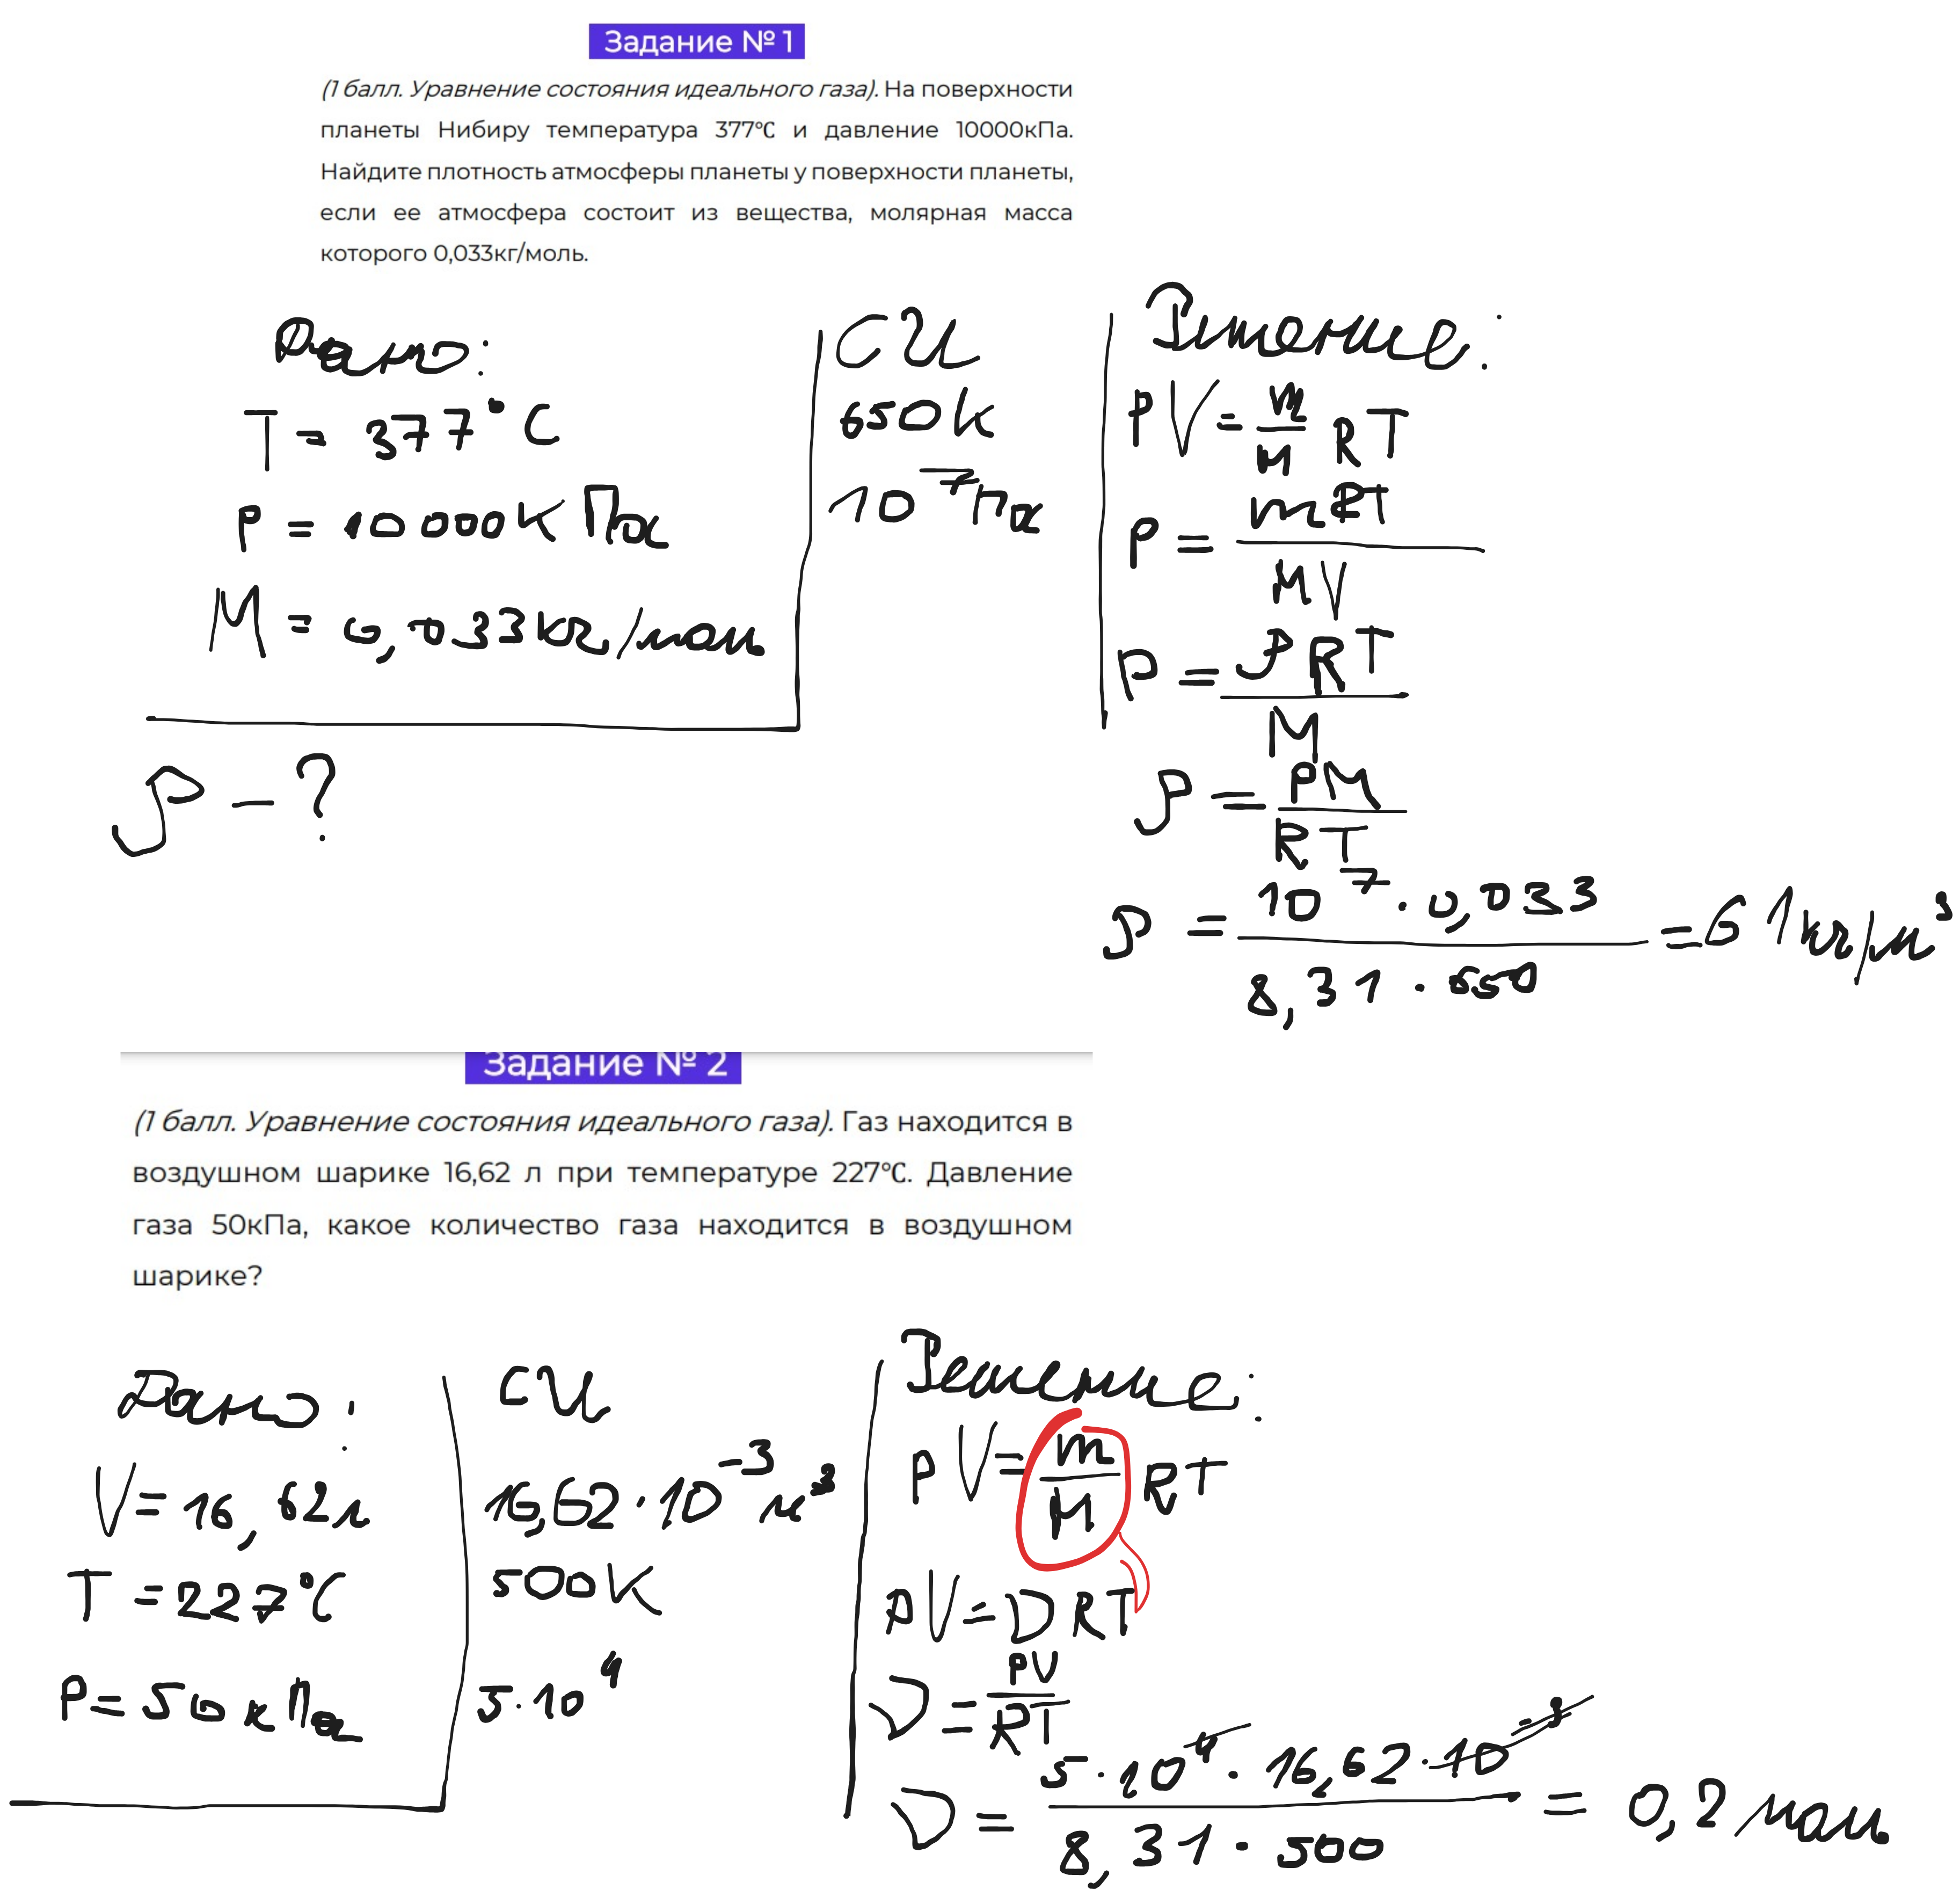 Задание № 1
(1 балл. Уравнение состояния идеального газа). На поверхности
планеты Нибиру температура 377℃ и давление 10000кПа.
Найдите плотность атмосферы планеты у поверхности планеты,
если ее атмосфера состоит из вещества, молярная масса
которого 0,033кг/моль.
Дано:
T = 377°C
P = 10000кПа
M = 0,033кг/моль
ρ - ?
СИ
650К
10⁷Па
Решение:
PV = m/M RT
P = mRT/MV
P = ρRT/M
ρ = PM/RT
ρ = 10⁷ · 0,033 / 8,31 · 650 = 61кг/м³
Задание № 2
(1 балл. Уравнение состояния идеального газа). Газ находится в
воздушном шарике 16,62 л при температуре 227℃. Давление
газа 50кПа, какое количество газа находится в воздушном
шарике?
Дано:
V = 16,62л
T = 227°C
P = 50кПа
СИ
16,62·10⁻³ м³
500К
5·10⁴
Решение:
PV = m/M RT
PV = DRT
D = PV/RT
D = 5·10⁴ · 16,62·10⁻³ / 8,31 · 500 = 0,2 моль